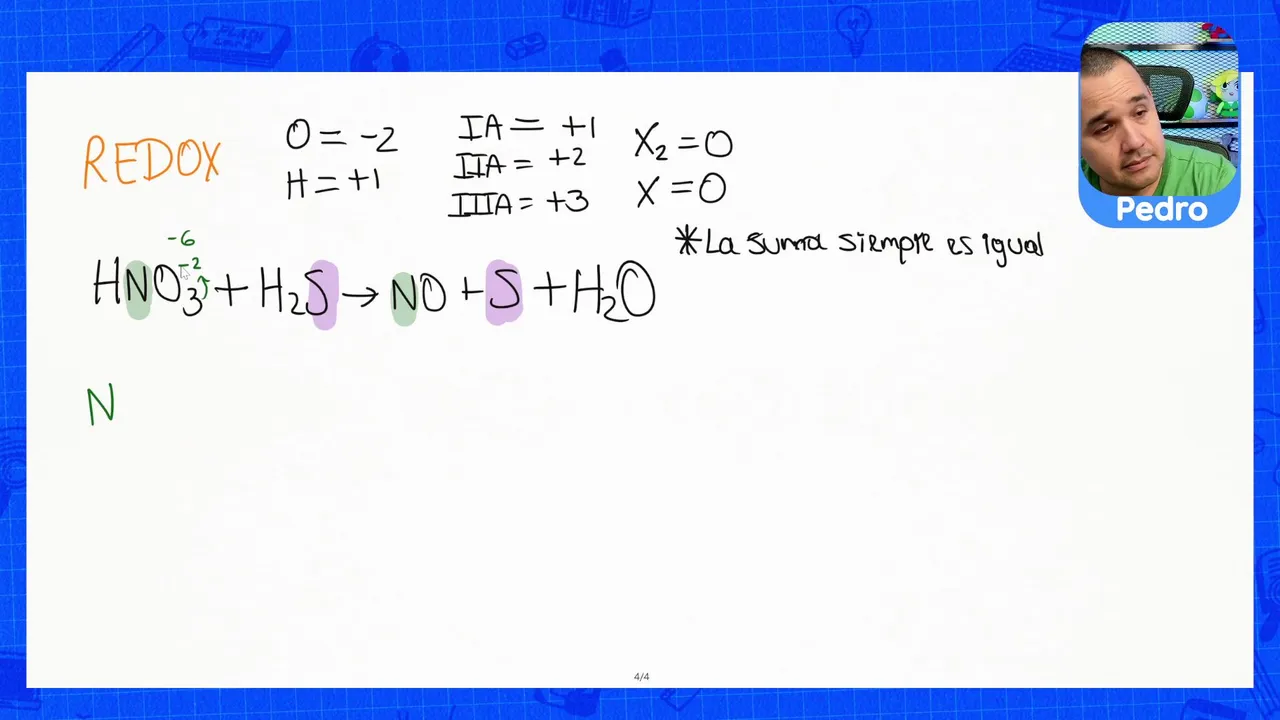 REDOX
O = -2
H = +1
IA = +1
IIA = +2
IIIA = +3
X₂ = O
X = O
Pedro
*La suma siempre es igual
-6
-2
HNO₃ + H₂S → NO + S + H₂O
N
4/4